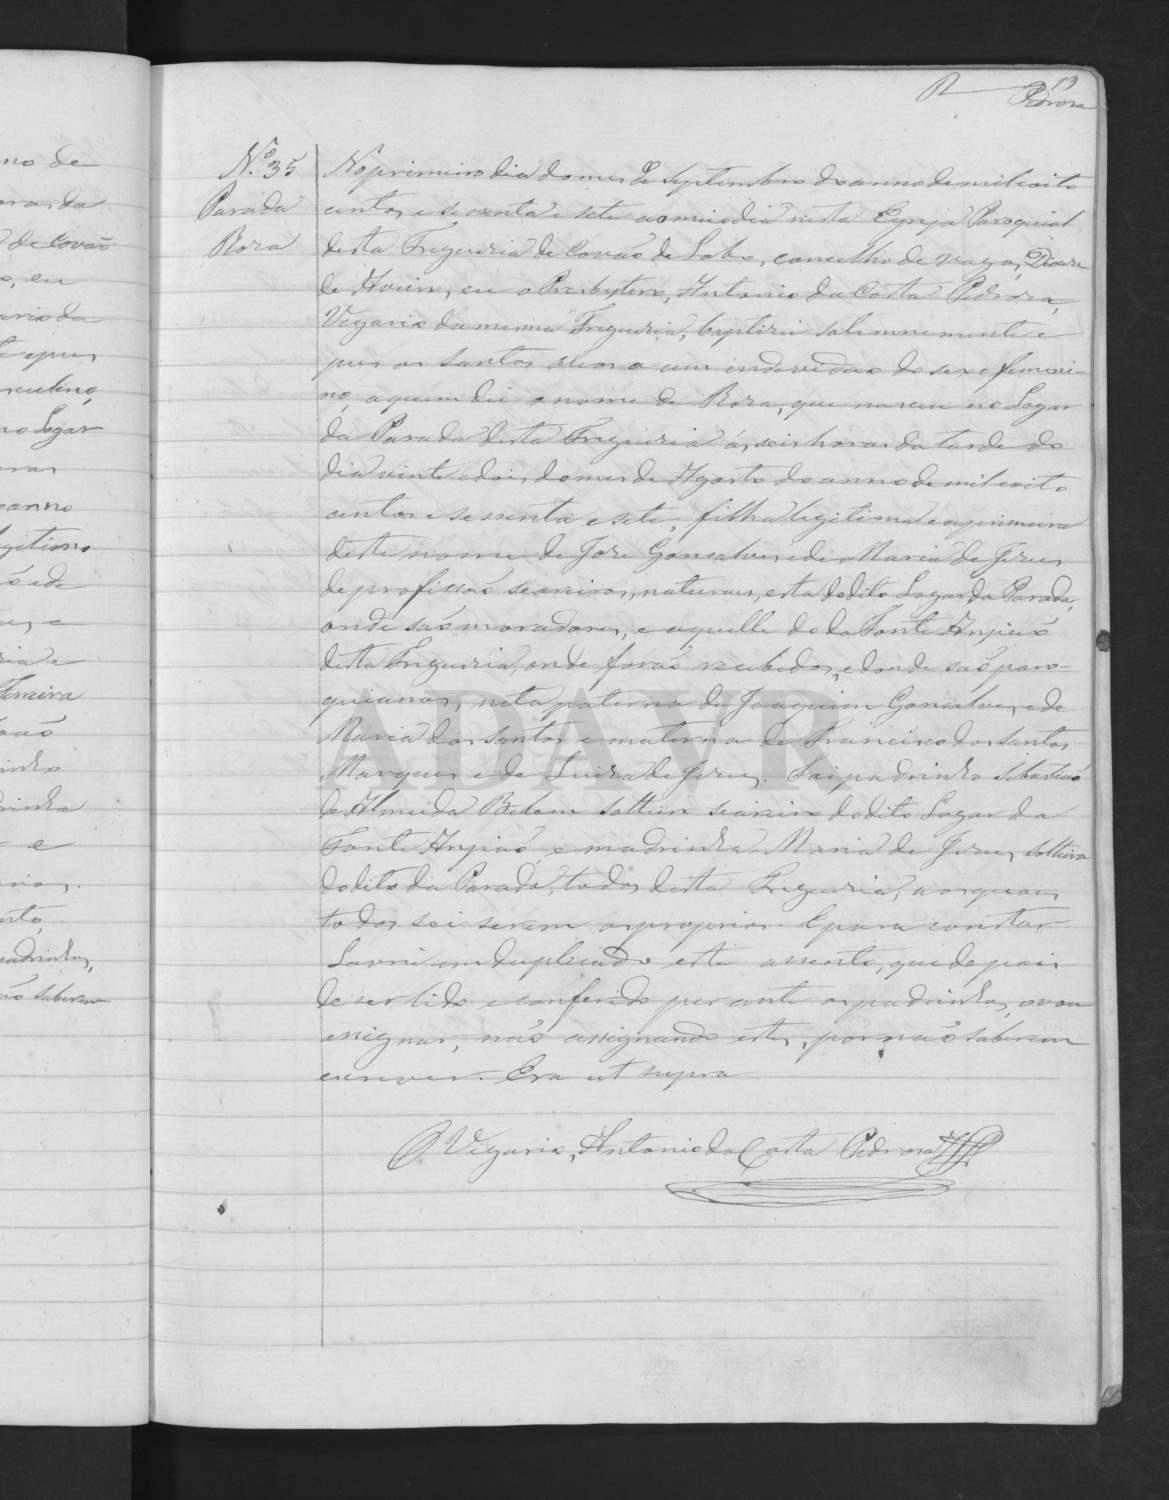 19
Pedroza
no de
N.º 35
Parada
Roza
No primeiro dia do mes de Septembro do anno de mil oito
centos e sessenta e sete ao meio dia nesta Egreja Paroquial
desta Freguezia de Covaõ de Lobo, concelho de Vagos, Dioceze
de Aveiro, eu o Presbytero, Antonio da Costa Pedroza,
Vigario da mesma Freguezia, baptizei solemnemente e
pus os santos oleos a um endeveduo do sexo femeni-
no, a quem dei o nome de Roza, que nasceu no Logar
da Parada desta Freguezia ás seis horas da tarde do
dia vinte e dois do mes de Agosto do anno de mil oito
centos e sessenta e sete, filha legitima e a primeira
deste nome de Joze Gonsalves e de Maria de Jezus
de profissaõ seareiros, naturaes, esta do dito Logar da Parada,
onde saõ moradores, e aquelle do da Fonte Anjiaõ
desta Freguezia, onde foraõ recebidos, e donde saõ paro-
quianos, neta paterna de Joaquim Gonsalves e de
Maria dos Santos e materna de Francisco dos Santos
Marques e de Luiza de Jezus. Foi padrinho Sebastiaõ
de Almeida Bedem solteiro seareiro do dito Logar da
Fonte Anjiaõ, e madrinha Maria de Jezus solteira
do dito da Parada, todos desta Freguezia, aos quaes
todos sei serem os proprios. E para constar
Lavrei em duplicado este assento, que depois
de ser lido e conferido perante os padrinhos, o vou
assignar, naõ assignando estes, por naõ saberem
escrever. Era ut supra
O Vigario, Antonio da Costa Pedroza
ADAVR